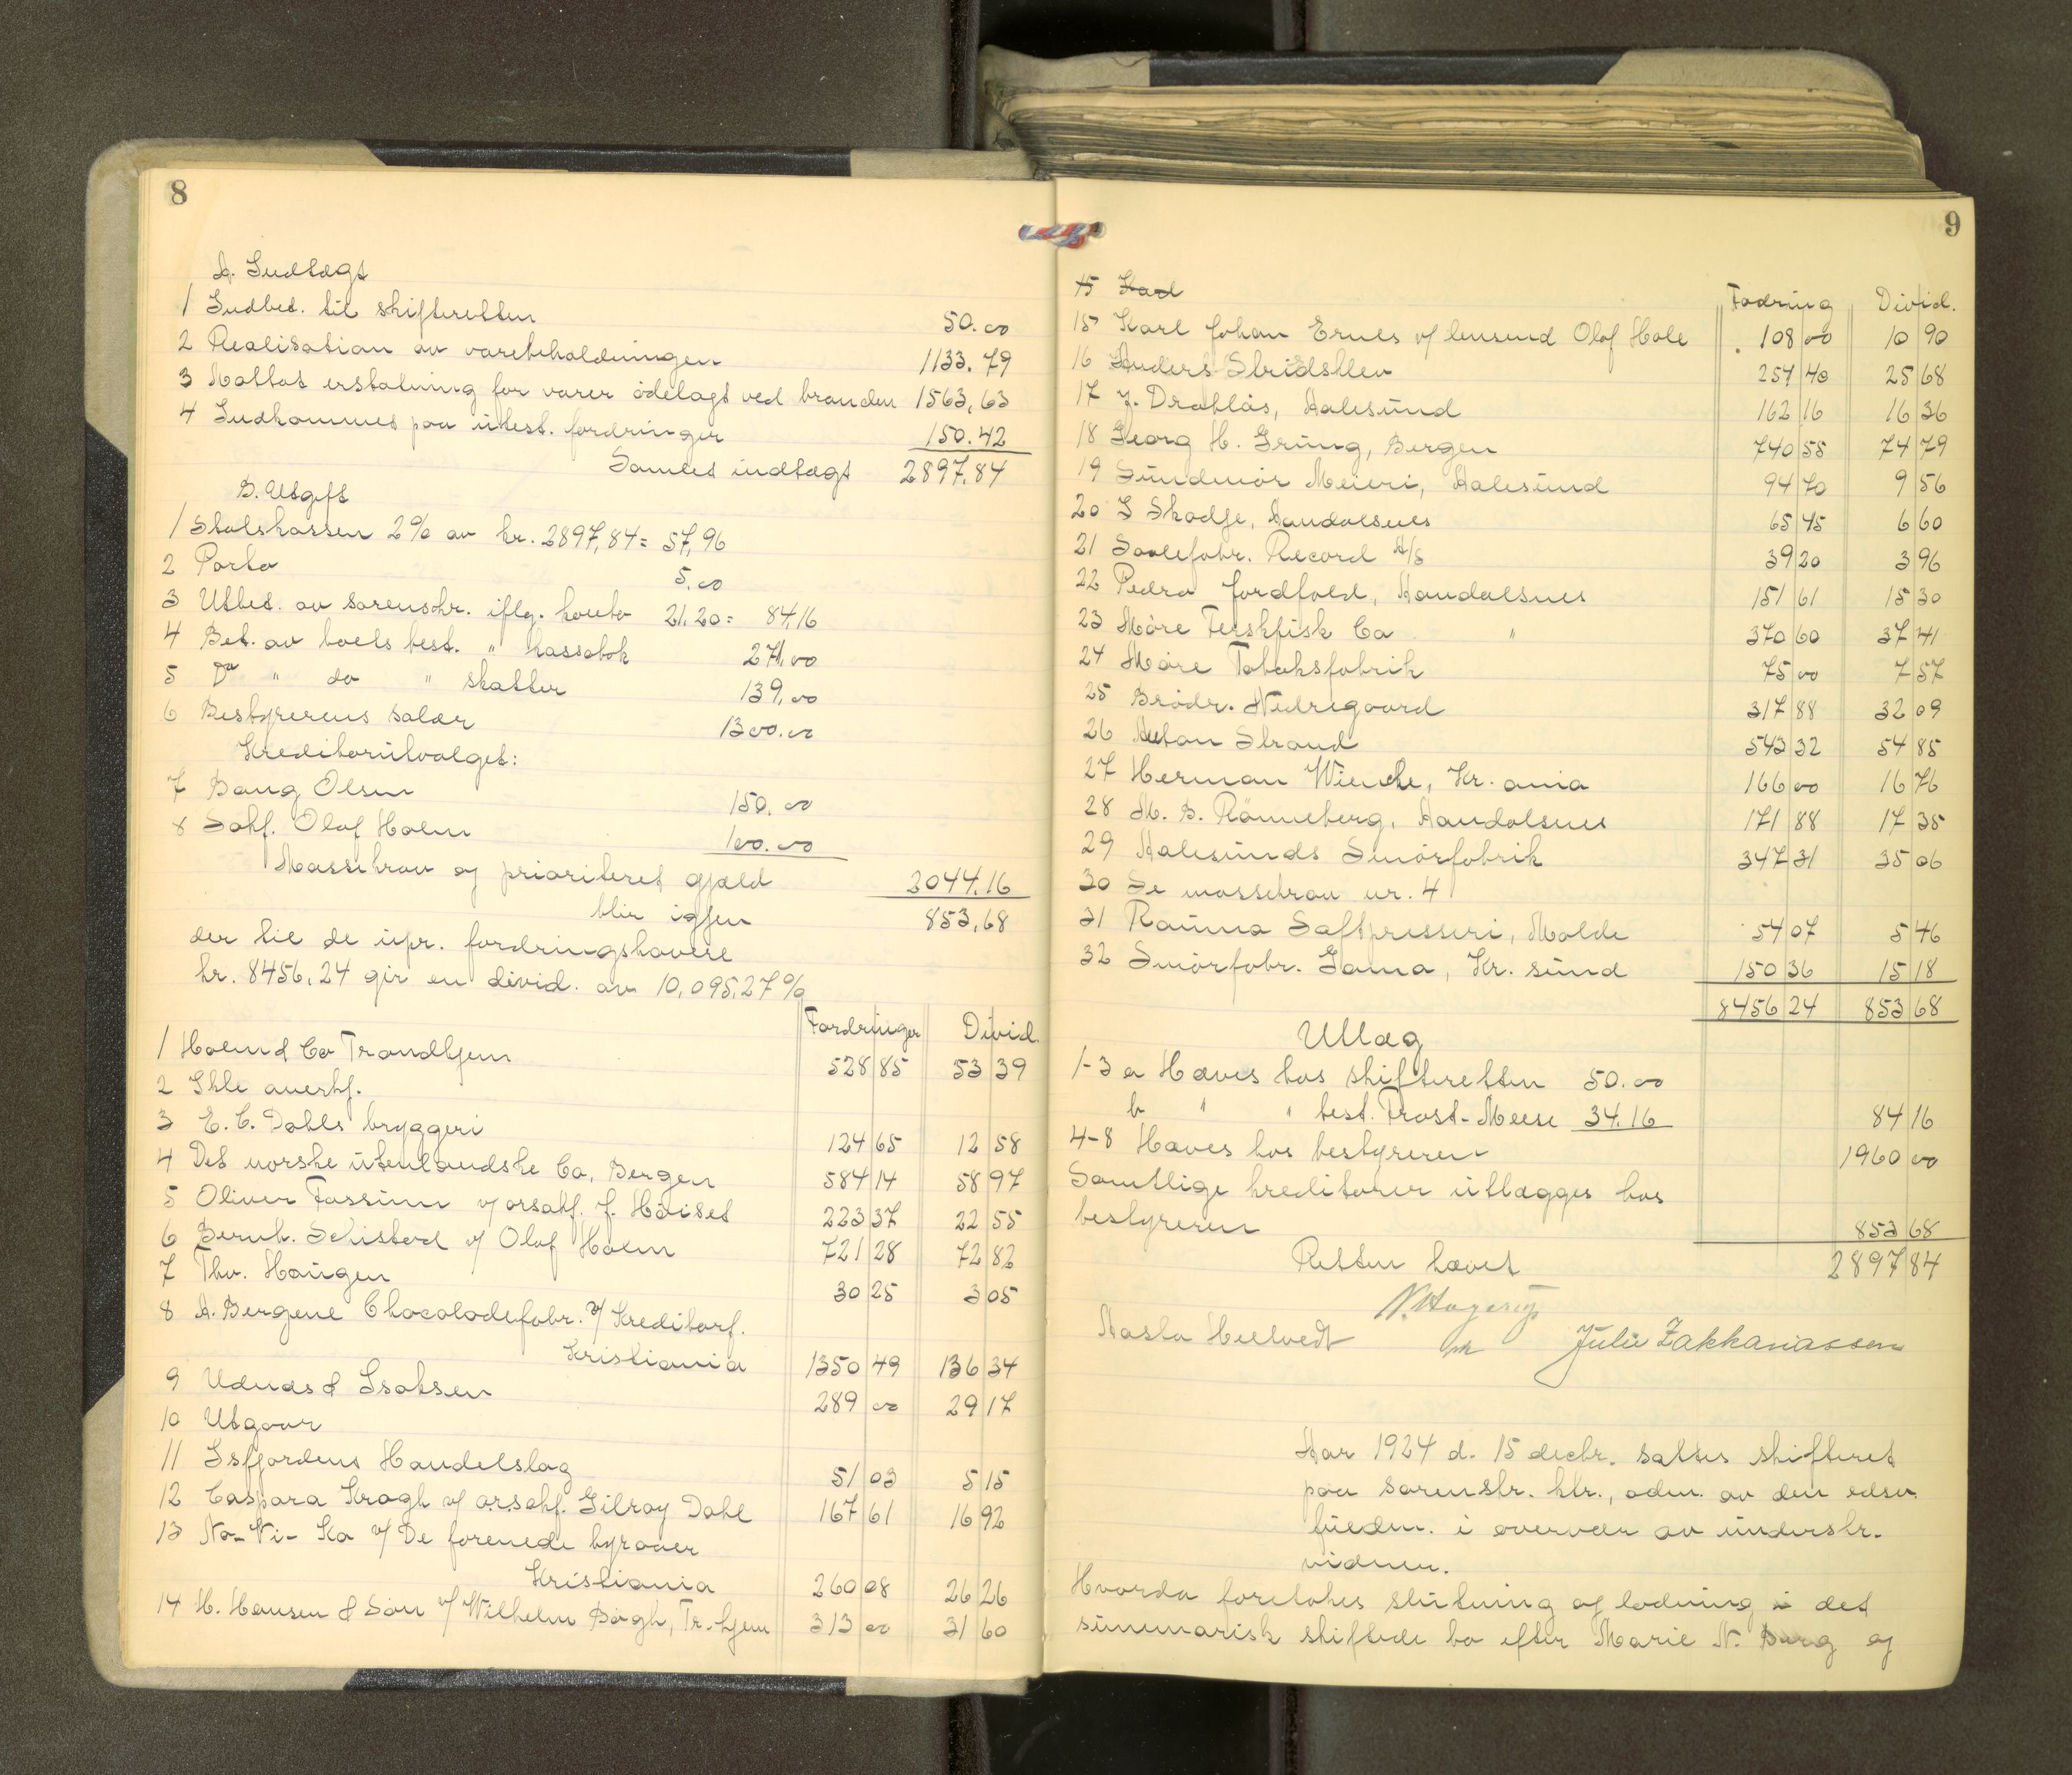 8
A. Indtægt
1 Indbet. til skifteretten 50.00
2 Realisation av varebeholdningen 1133.79
3 Mottat erstatning for varer ödelagt ved branden 1563,63
4 Indkommet paa utest. fordringer 150.42
Samlet indtægt 2897.84
B. Utgift
1 Statskassen 2% av kr. 2897,84 = 57,96
2 Porto 5.00
3 Utbet. av sorenskr. iflg. konto 21.20 = 84,16
4 Bet. av boets best. " kassabok 271.00
5 Do " do " skatter 139.00
6 Bestyrerens salær 1300.00
Kreditorutvalget:
7 Bang Olsen 150.00
8 Sakf. Olaf Holm 100.00
Massekrav og prioritert gjæld 2044.16
blir igjen 853,68
der til de upr. fordringshavere
kr. 8456,24 gir en divid. av 10,095,27%
Fordringer Divid.
1 Holm & Co Trondhjem 528 85 53 39
2 Ikke anerkj.
3 E. C. Dahls bryggeri 124 65 12 58
4 Det norske utenlandske Co, Bergen 584 14 58 97
5 Oliver Fossum v/ orsakf. J. Höiset 223 37 22 55
6 Bernh. Schisterd v/ Olaf Holm 721 28 72 82
7 Thv. Haugen 30 25 3 05
8 A. Bergene Chocoladefabr. v/ Kreditorf.
Kristiania 1350 49 136 34
9 Udnæs & Isaksen 289 00 29 17
10 Utgaar
11 Isfjordens Handelslag 51 03 5 15
12 Caspara Krogh v/ o.r.sakf. Gilroy Dahl 167 61 16 92
13 No-Vi-Ko v/ De forenede byraaer
Kristiania 260 08 26 26
14 H. Hansen & Sön v/ Wilhelm Bögh, Tr.hjem 313 00 31 60
9
15 Karl
Fordring Divid.
15 Karl Johan Ernes v/ lensmd Olaf Hole 108 00 10 90
16 Anders Stridsklev 254 40 25 68
17 J. Drabløs, Aalesund 162 16 16 36
18 Georg H. Grung, Bergen 740 55 74 79
19 Sundmör Meieri, Aalesund 94 70 9 56
20 I Skodje, Aandalsnes 65 45 6 60
21 Saalefabr. Record A/S 39 20 3 96
22 Pedra Jordfald, Aandalsnes 151 61 15 30
23 Möre Ferskfisk Co " 370 60 37 41
24 Möre Tobaksfabrik 75 00 7 57
25 Brödr. Nedregaard 317 88 32 09
26 Anton Strand 543 32 54 85
27 Herman Wiencke, Kr.ania 166 00 16 76
28 M. B. Rönneberg, Aandalsnes 171 88 17 35
29 Aalesunds Smörfabrik 347 31 35 06
30 Se massekrav nr. 4
31 Rauma Saftpresseri, Molde 54 07 5 46
32 Smörfabr. Goma, Kr.sund 150 36 15 18
8456 24 853 68
Utlæg
1-3 a Hæves hos skifteretten 50.00
b " " best. Prost-Meese 34.16 84 16
4-8 Hæves hos bestyreren 1960 00
Samtlige kreditorer utlægges hos
bestyreren 853 68
2897 84
Retten hævet
N. Hagerup
Aasta Helvedt fm Julie Zakkariassen
Aar 1924 d. 15 decbr. sattes skifteret
paa sorenskr. ktr., adm. av den edsv.
fuldm. i overvær av underskr.
vidner.
Hvorda foretokes slutning og lodning i det
summarisk skiftede bo efter Marie N. Berg og